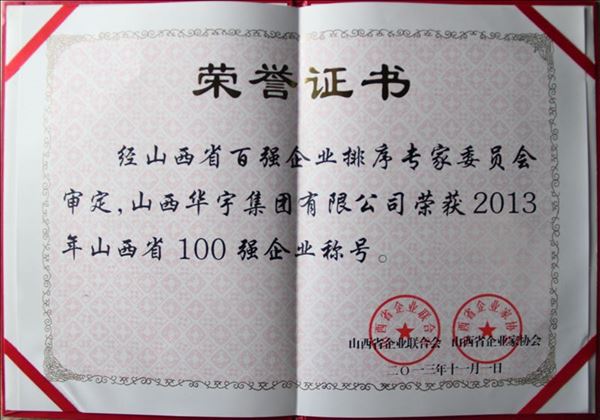 荣誉证书
经山西省百强企业排序专家委员会
审定,山西华宇集团有限公司荣获2013
年山西省100强企业称号。
山西省企业联合会 山西省企业家协会
二〇一三年十一月一日